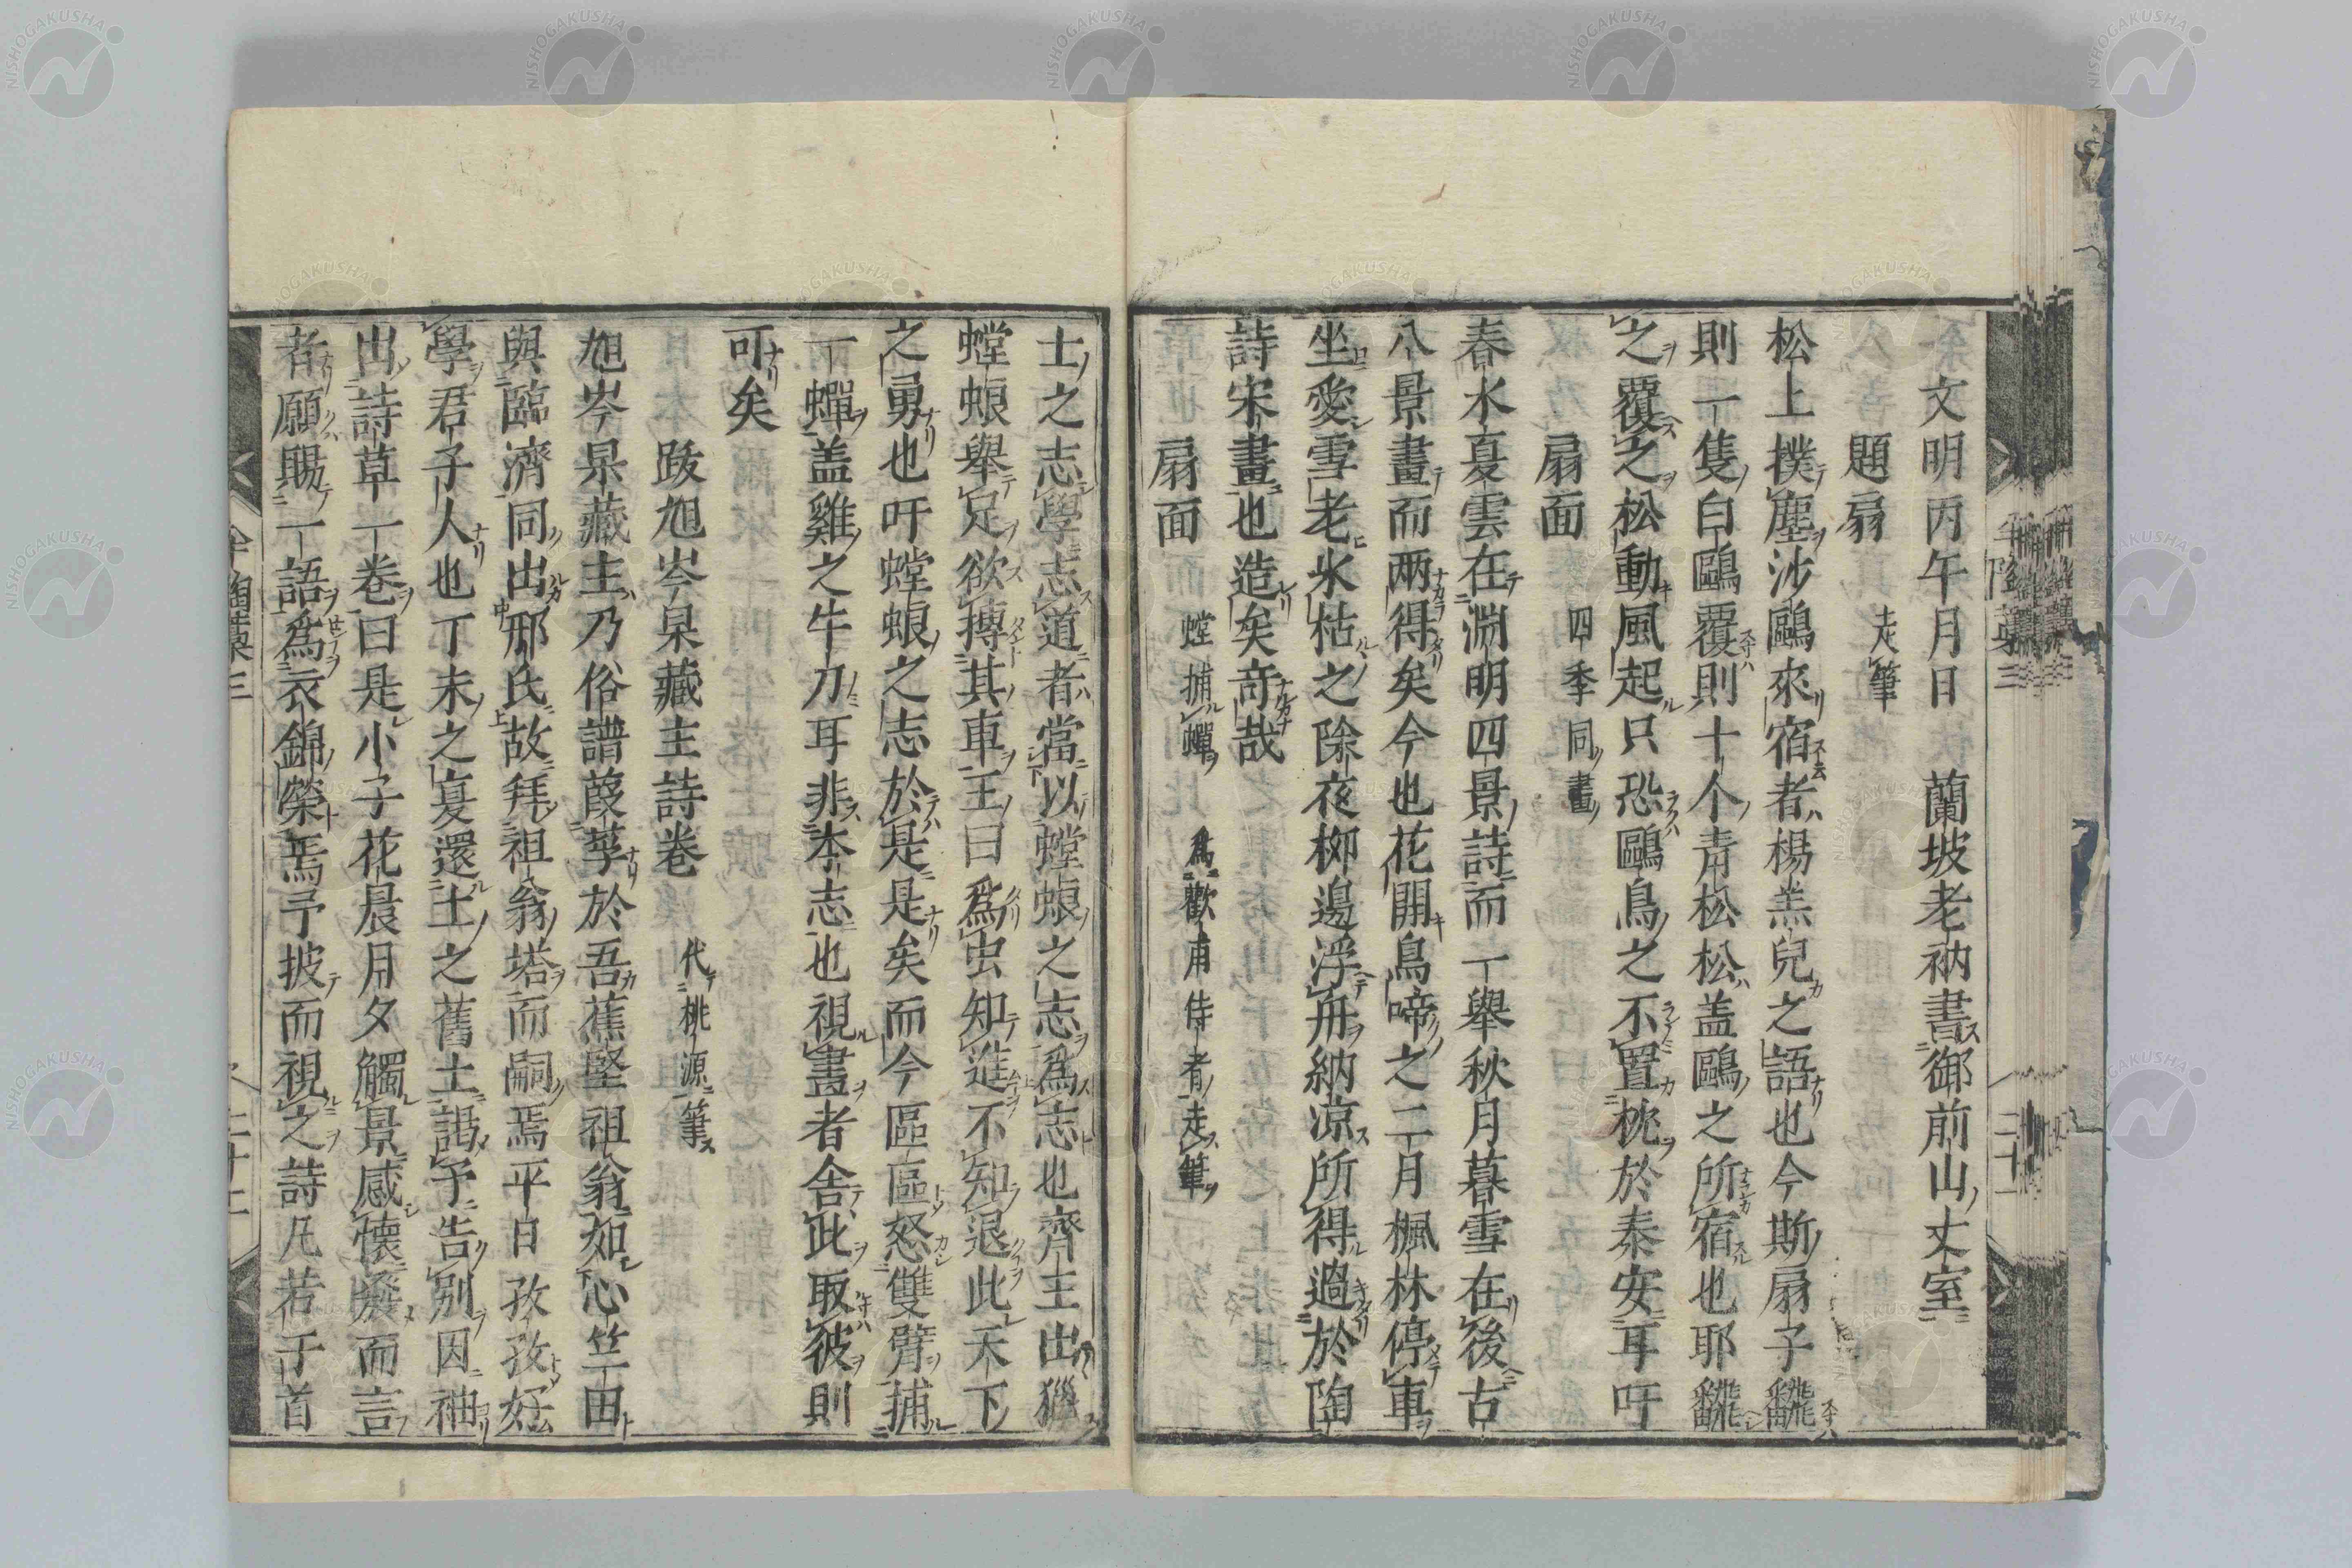 文明丙午月日　蘭坡老衲書御前山丈室
題扇　走筆
松上撲塵沙鷗來宿者楊羔兒之語也今斯扇子飜
則一隻白鷗覆則十个青松松盖鷗之所宿也耶飜
之覆之松動風起只恐鷗鳥之不置枕於泰安耳吁
扇面　四季同畫
春水夏雲在淵明四景詩而一舉秋月暮雪在後古
八景畫而兩得矣今也花開鳥啼之二月楓林停車
坐愛雪老氷枯之除夜柳邊浮舟納凉所得過於陶
詩宋畫也造矣竒哉
扇面　螳捕蟬　為歡甫侍者走筆
士之志學志道者當以螳蜋之志為志也齊主出獵
螳蜋舉足欲摶其車王曰為虫知進不知退此天下
之勇也吁螳蜋之志於是是矣而今區區怒雙臂捕
一蟬盖雞之牛刀耳非本志也視畫者舍此取彼則
可矣
跋旭岑杲藏主詩卷　代桃源筆
旭岑杲藏主乃俗譜葭莩於吾蕉堅祖翁如心竺田
與臨濟同出邢氏故拜祖翁塔而嗣焉平日孜孜好
學君子人也丁未之夏還土之舊土謁予告別因袖
出詩草一卷曰是小子花晨月夕觸景感懷發而言
者願賜一語為衣錦榮焉予披而視之詩凡若干首